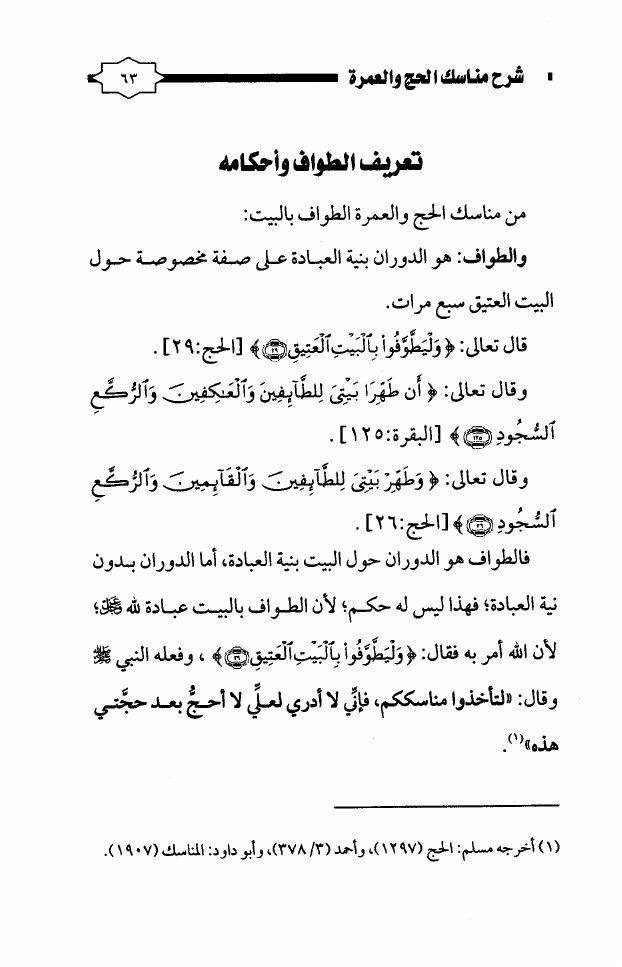 شرح مناسك الحج والعمرة
٦٣
تعريف الطواف وأحكامه
من مناسك الحج والعمرة الطواف بالبيت:
والطواف: هو الدوران بنية العبادة على صفة مخصوصة حول
البيت العتيق سبع مرات.
قال تعالى: ﴿وَلْيَطَّوَّفُوا۟ بِٱلْبَيْتِ ٱلْعَتِيقِ ۝٢٩﴾ [الحج:٢٩].
وقال تعالى: ﴿أَن طَهِّرَا بَيْتِيَ لِلطَّآئِفِينَ وَٱلْعَـٰكِفِينَ وَٱلرُّكَّعِ
ٱلسُّجُودِ ۝١٢٥﴾ [البقرة:١٢٥].
وقال تعالى: ﴿وَطَهِّرْ بَيْتِيَ لِلطَّآئِفِينَ وَٱلْقَآئِمِينَ وَٱلرُّكَّعِ
ٱلسُّجُودِ ۝٢٦﴾ [الحج:٢٦].
فالطواف هو الدوران حول البيت بنية العبادة، أما الدوران بدون
نية العبادة؛ فهذا ليس له حكم؛ لأن الطواف بالبيت عبادة لله عز وجل؛
لأن الله أمر به فقال: ﴿وَلْيَطَّوَّفُوا۟ بِٱلْبَيْتِ ٱلْعَتِيقِ ۝٢٩﴾، وفعله النبي ﷺ
وقال: «لتأخذوا مناسككم، فإنِّي لا أدري لعلِّي لا أحجُّ بعد حجَّتي
هذه»(١).
(١) أخرجه مسلم: الحج (١٢٩٧)، وأحمد (٣/ ٣٧٨)، وأبو داود: المناسك (١٩٠٧).